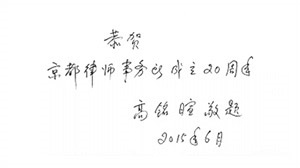 恭贺
京都律师事务所成立20周年
高铭暄敬题
2015年6月